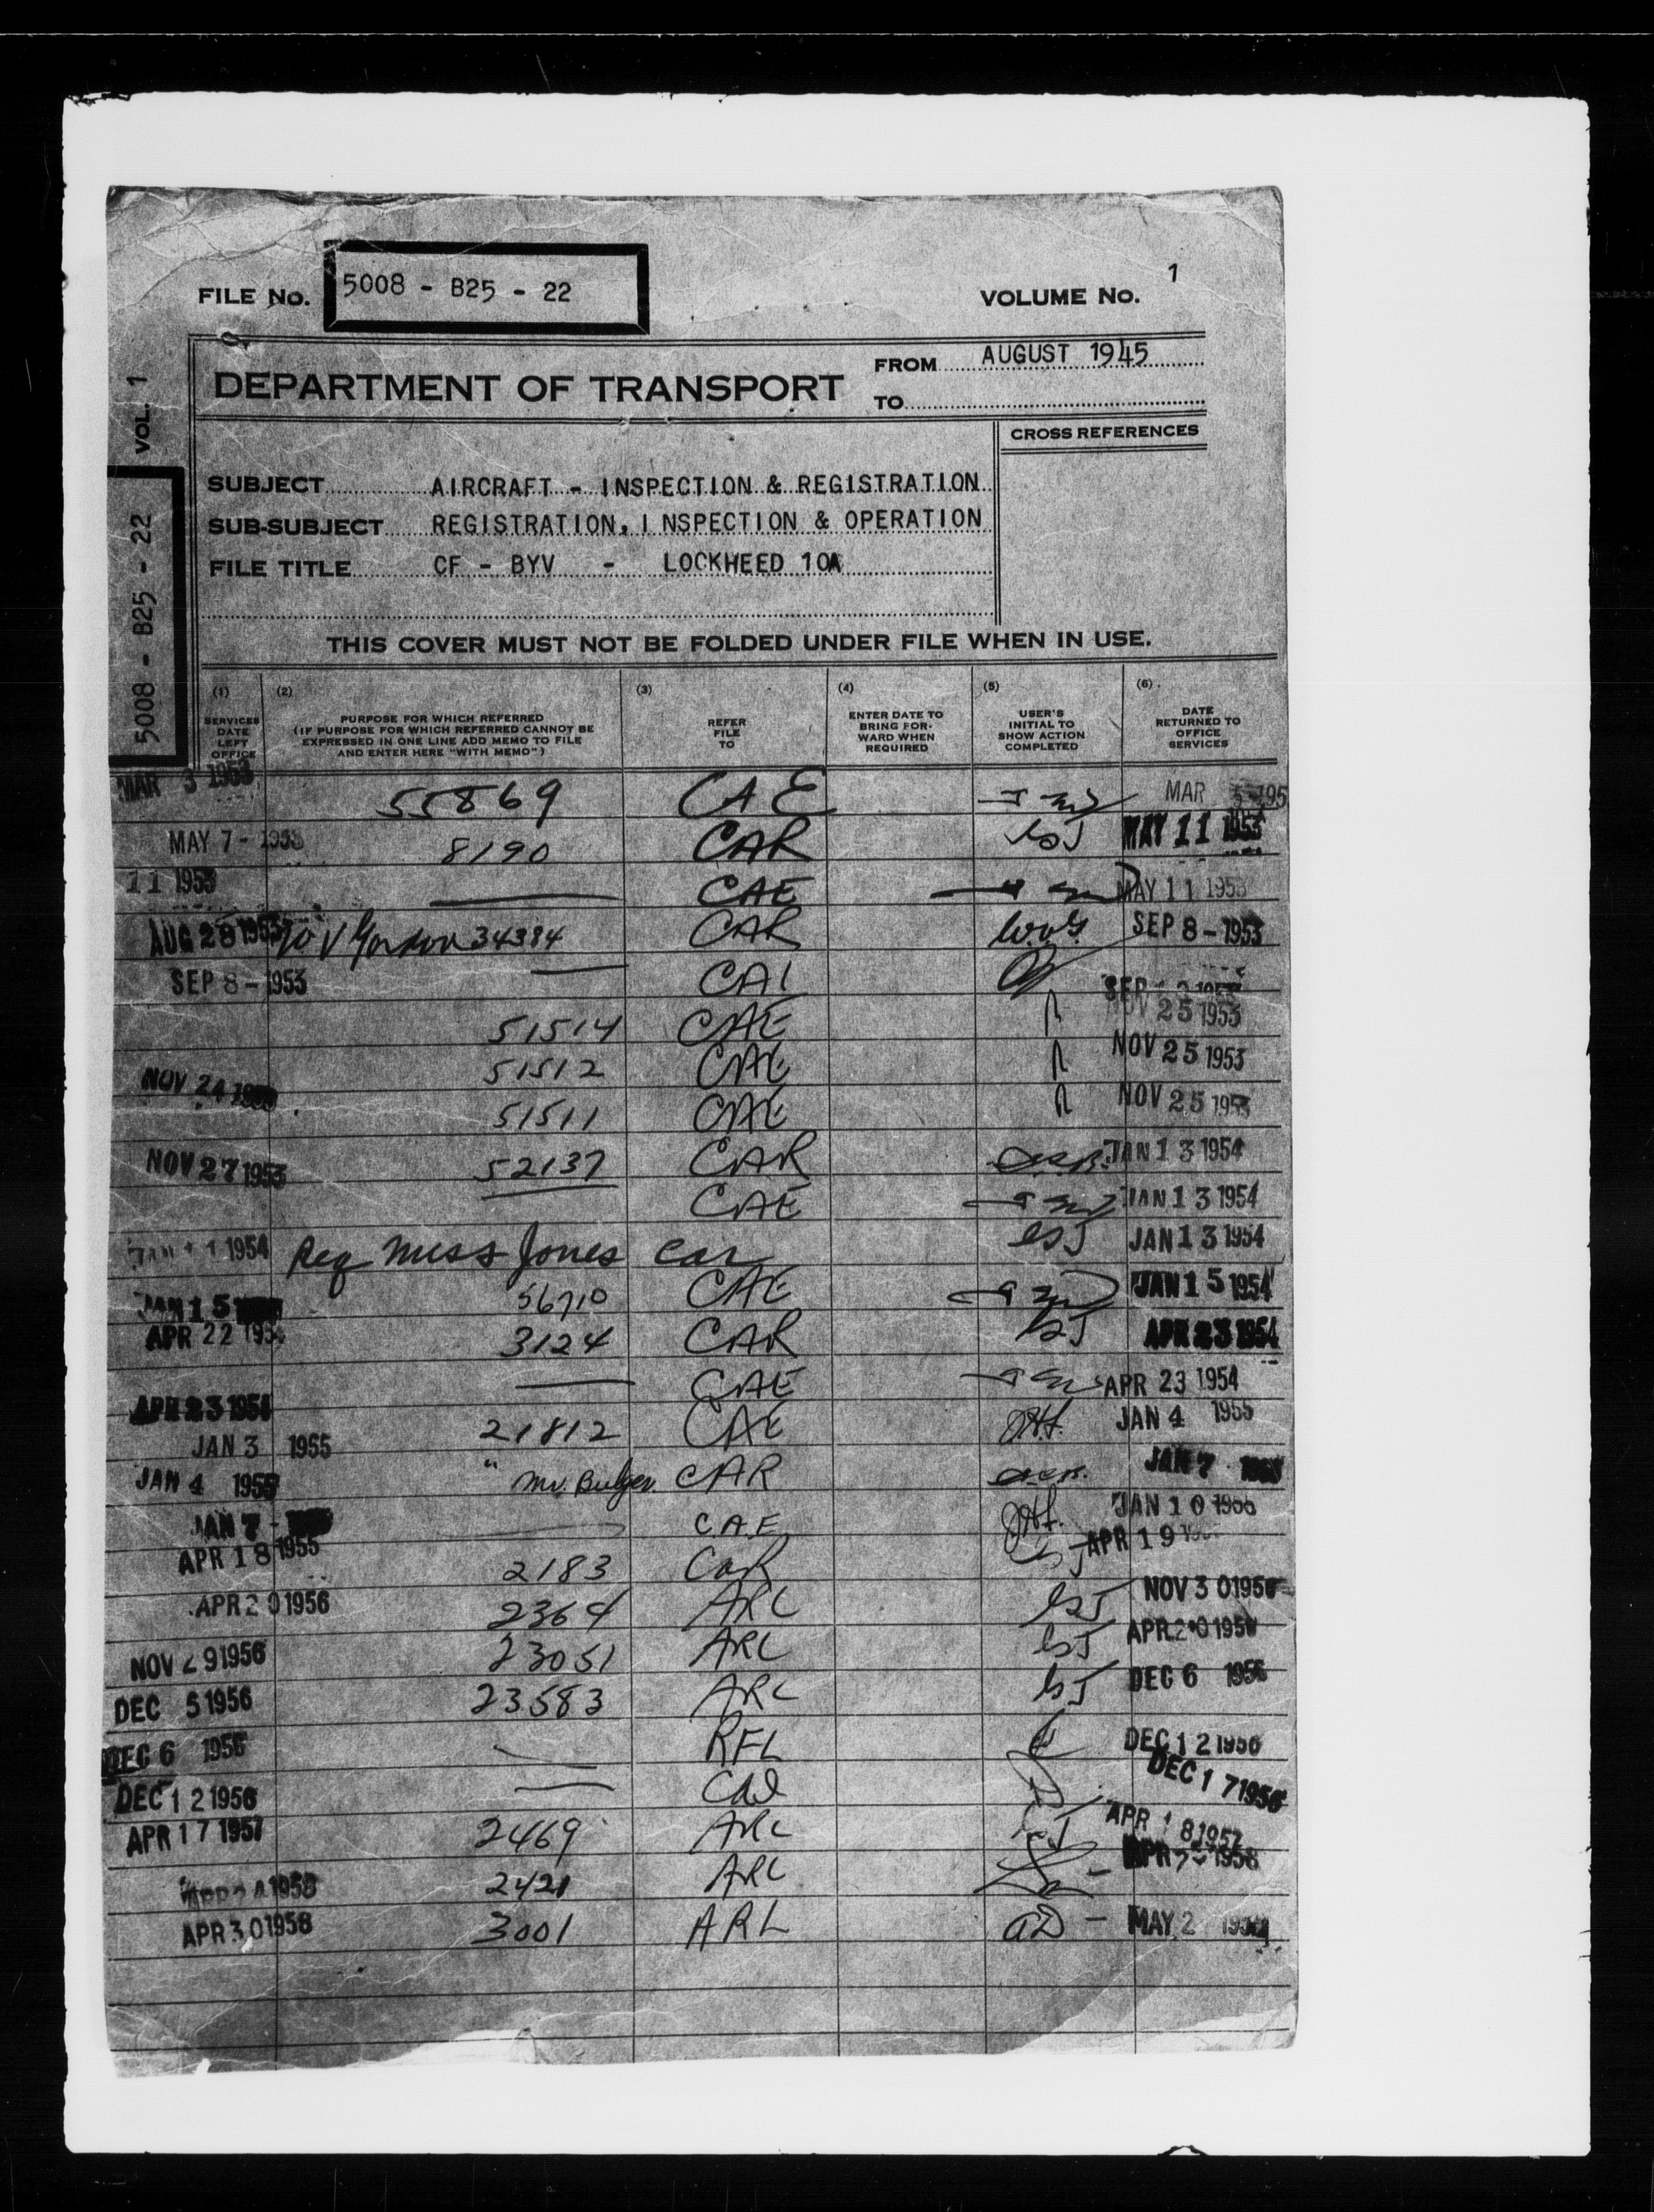 FILE No. 5008 - B25 - 22
VOLUME No. 1
VOL. 1
5008 - B25 - 22
DEPARTMENT OF TRANSPORT
FROM AUGUST 1945
TO
CROSS REFERENCES
SUBJECT AIRCRAFT - INSPECTION & REGISTRATION
SUB-SUBJECT REGISTRATION, INSPECTION & OPERATION
FILE TITLE CF - BYV - LOCKHEED 10A
THIS COVER MUST NOT BE FOLDED UNDER FILE WHEN IN USE.
(1) SERVICES DATE LEFT OFFICE
(2) PURPOSE FOR WHICH REFERRED (IF PURPOSE FOR WHICH REFERRED CANNOT BE EXPRESSED IN ONE LINE ADD MEMO TO FILE AND ENTER HERE "WITH MEMO")
(3) REFER FILE TO
(4) ENTER DATE TO BRING FORWARD WHEN REQUIRED
(5) USER'S INITIAL TO SHOW ACTION COMPLETED
(6) DATE RETURNED TO OFFICE SERVICES
MAR 3 1953 55869 CAE MAR 5 195
MAY 7 - 1953 8190 CAR LSJ MAY 11 1953
11 1953 CAE MAY 11 1953
AUG 28 1953 W V Gordon 34384 CAR W.V.G. SEP 8 - 1953
SEP 8 - 1953 CAI SEP
51514 CAE NOV 25 1953
51512 CAE NOV 25 1953
NOV 24 51511 CAE NOV 25 1953
NOV 27 1953 52137 CAR JAN 13 1954
CAE JAN 13 1954
1954 Req Miss Jones Car LSJ JAN 13 1954
JAN 15 56710 CAE JAN 15 1954
APR 22 195 3124 CAR LSJ APR 23 1954
APR 23 1954 CAE APR 23 1954
JAN 3 1955 21812 CAE JAN 4 1955
JAN 4 1955 " Mr. Bulger CAR JAN 7
JAN 7 - C.A.E JAN 10 1955
APR 18 1955 2183 CAR LSJ APR 19
APR 20 1956 2364 ARC LSJ NOV 30 1956
NOV 29 1956 23051 ARC LSJ APR 20 195
DEC 5 1956 23583 ARC LSJ DEC 6 1956
DEC 6 1956 RFL DEC 12 1956
DEC 12 1956 CAI DEC 17 1956
APR 17 1957 2469 ARC APR 18 1957
1958 2421 ARC APR 1958
APR 30 1958 3001 ARL AD - MAY 2